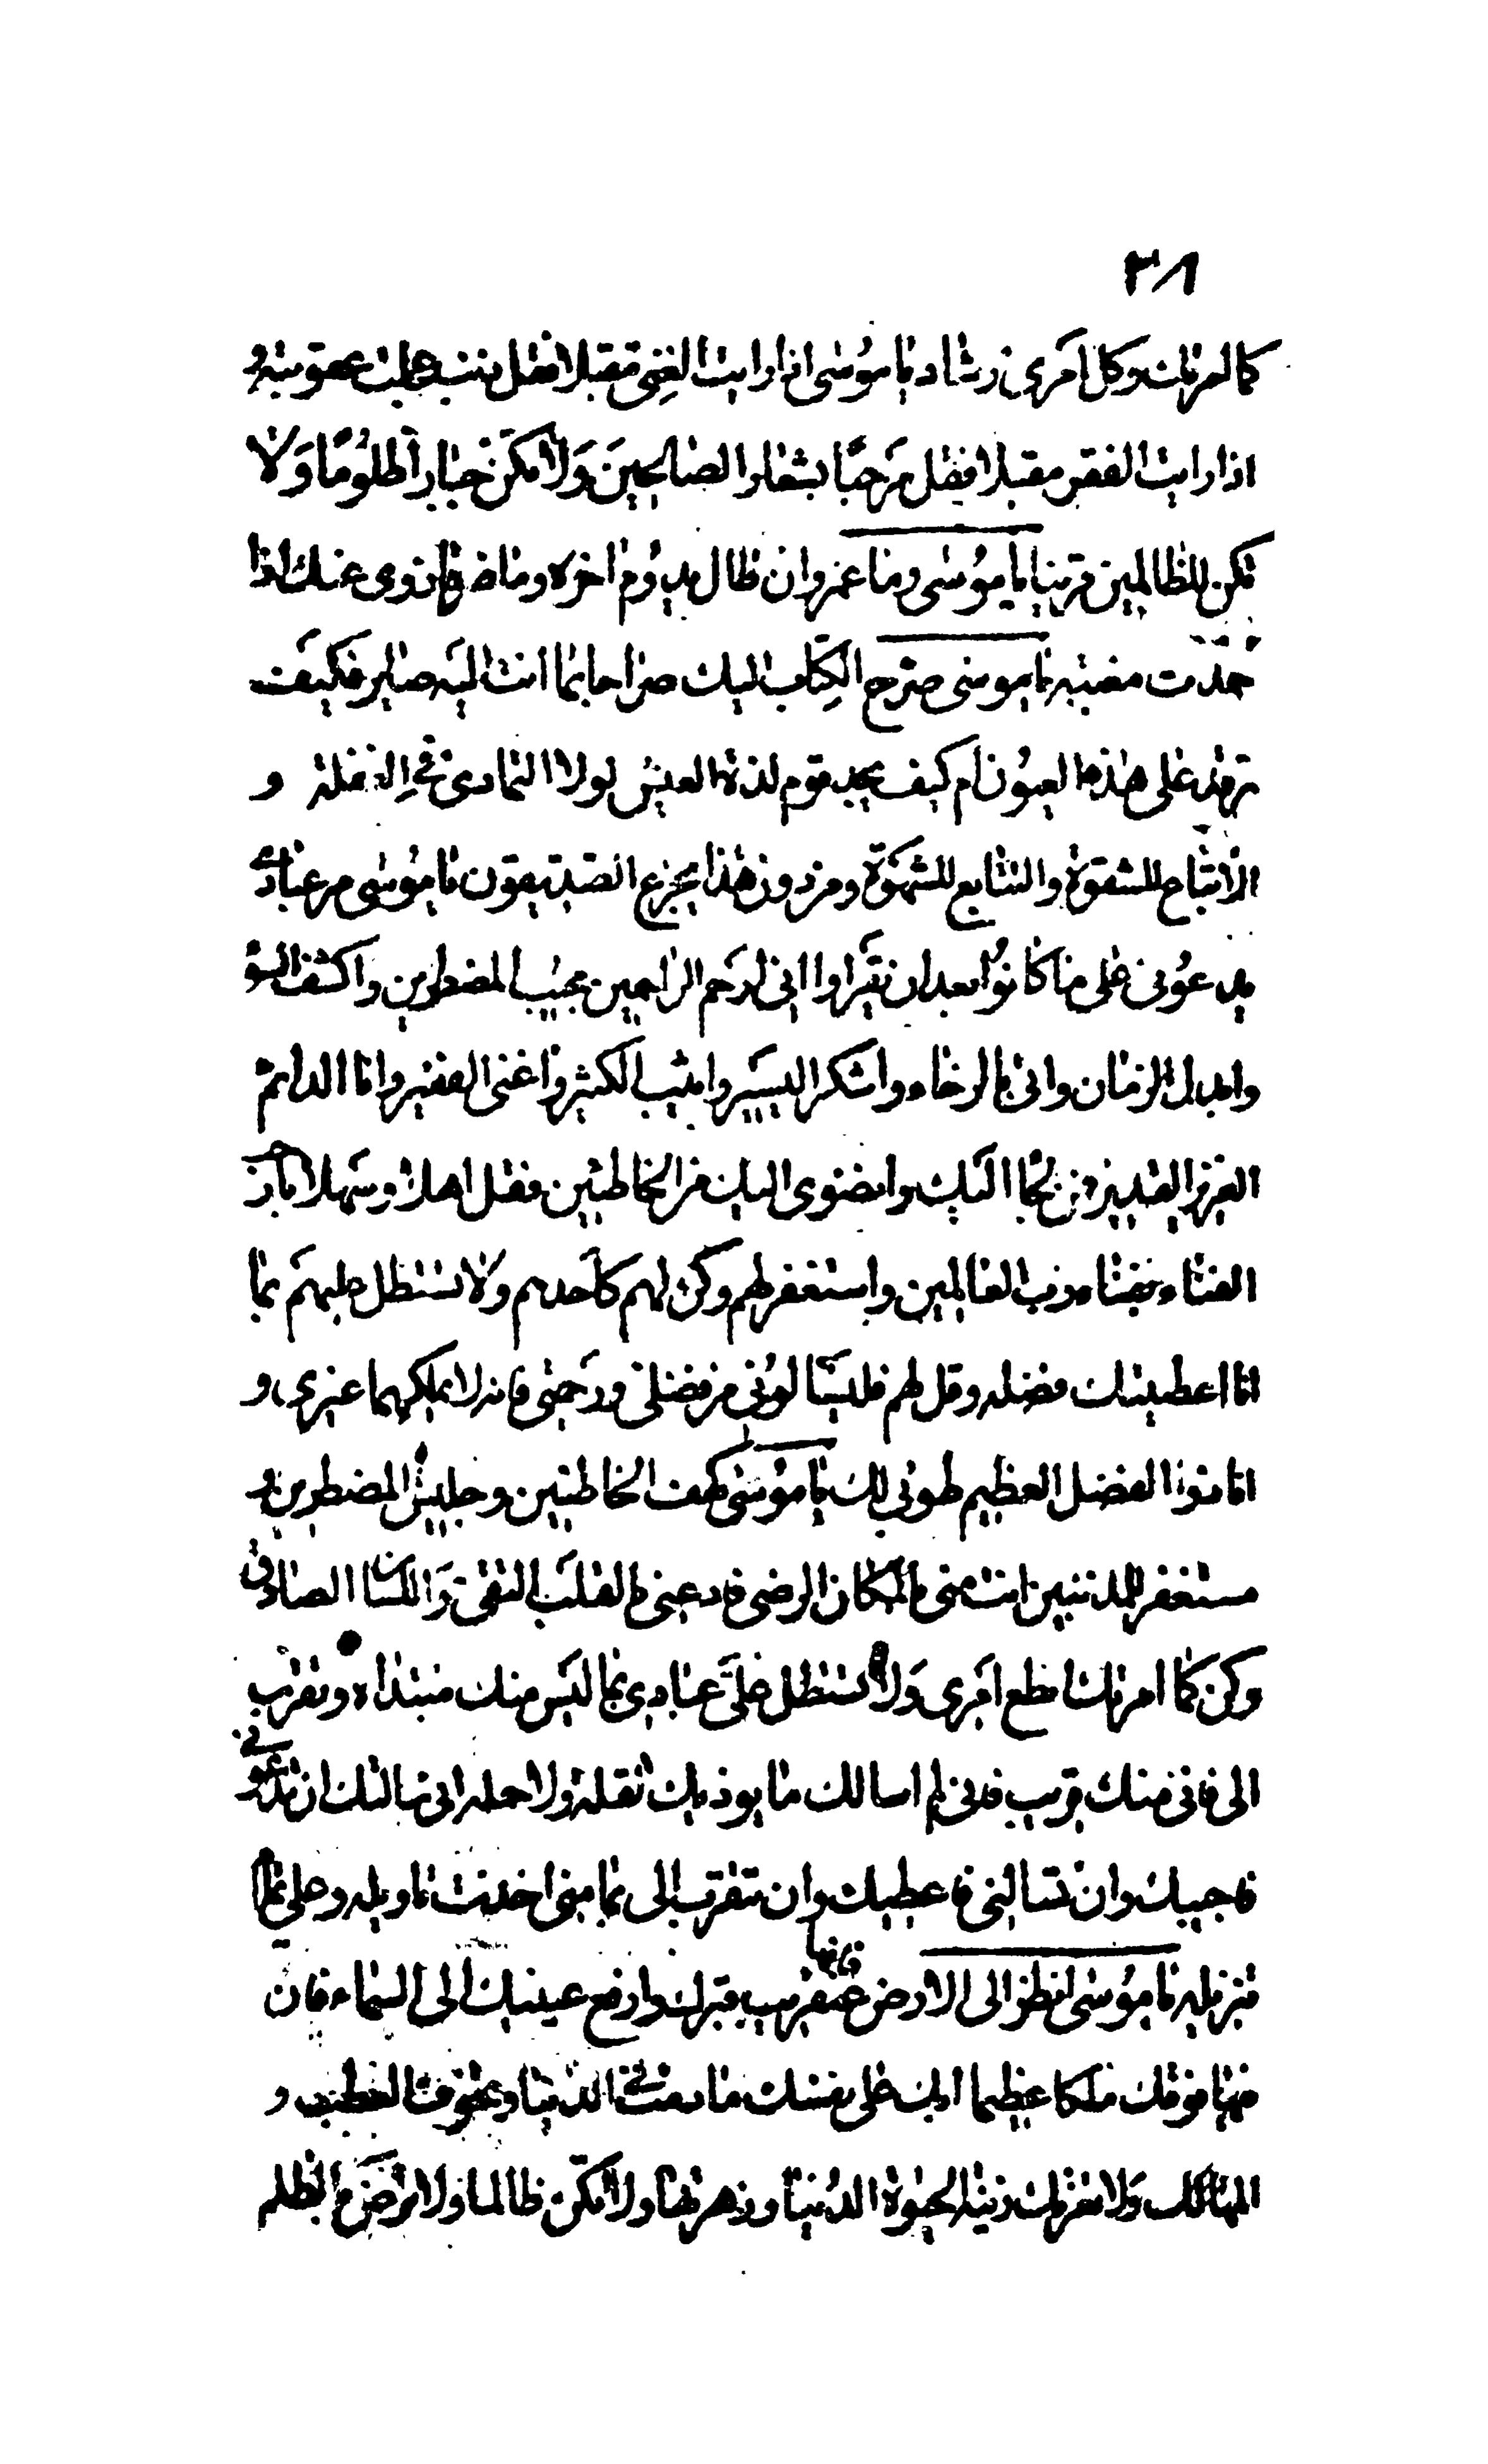 ٣٨
كما امرتك وكل امرى رشاد يا موسى اذا رايت الغنى مقبلا فقل ذنب عجلت عقوبته و
اذا رايت الفقر مقبلا فقل مرحبًا بشعار الصالحينَ وَلا تكنْ جبارا ظلومًا وَلا
تكن للظالمين قرينا يا موسى وما عمر وان طال يدوم اخره وما ضرك ما زوى عنك اذا
حمدت مغبته يا موسى صرح الكتاب اليك صراحا بما انت اليه صاير فكيف
ترقد على هذه العيون ام كيف يجد قوم لذة العيش لولا التمادى فى الغفلة و
الاتباع للشقوة والتتابع للشهوة ومن دون هذا يجزع الصديقون يا موسى مر عبادى
يدعونى على ما كانوا بعد ان يقروا انى ارحم الراحمين مجيب المضطرين واكشف السوء
وابدل الزمان واتى بالرخاء واشكر اليسير واثيب الكثير واغنى الفقير وانا الدائم
العزيز القدير فمن لجا اليك وانضوى اليك من الخاطئين فقل اهلا وسهلا يا رحب
الفناء بفناء رب العالمين واستغفر لهم وكن لهم كاحدهم ولا تستطل عليهم بما
انا اعطيتك فضله وقل لهم فليسالونى من فضلى ورحمتى فانه لا يملكهما غيرى و
انا ذو الفضل العظيم طوبى لك يا موسى كهف الخاطئين وجليس المضطرين و
مستغفر للمذنبين انت منى بالمكان الرضى فادعنى بالقلب النقى وَاللسان الصادق
وكن كما امرتك اطع امرى وَلا تستطل على عبادى بما ليس منك مبتداه وتقرب
الى فانى منك قريب فانى لم اسالك ما يوذيك ثقله ولا حمله انى سالتك ان تدعونى
فاجيبك وان تسالنى فاعطيك وان تتقرب الى بما منى اخذت تاويله وعلى تمام
تنزيله يا موسى انظر الى الارض فانها عنقريب قبرك وارفع عينيك الى السماء فان
فيها فوقك ملكا عظيما ابك على نفسك ما دمت فى الدنيا وتخوف العطب و
المهالك وَلا تغرنك زينة الحيوة الدنيا وزهرتها ولا تكن ظالما ولا ترض بالظلم